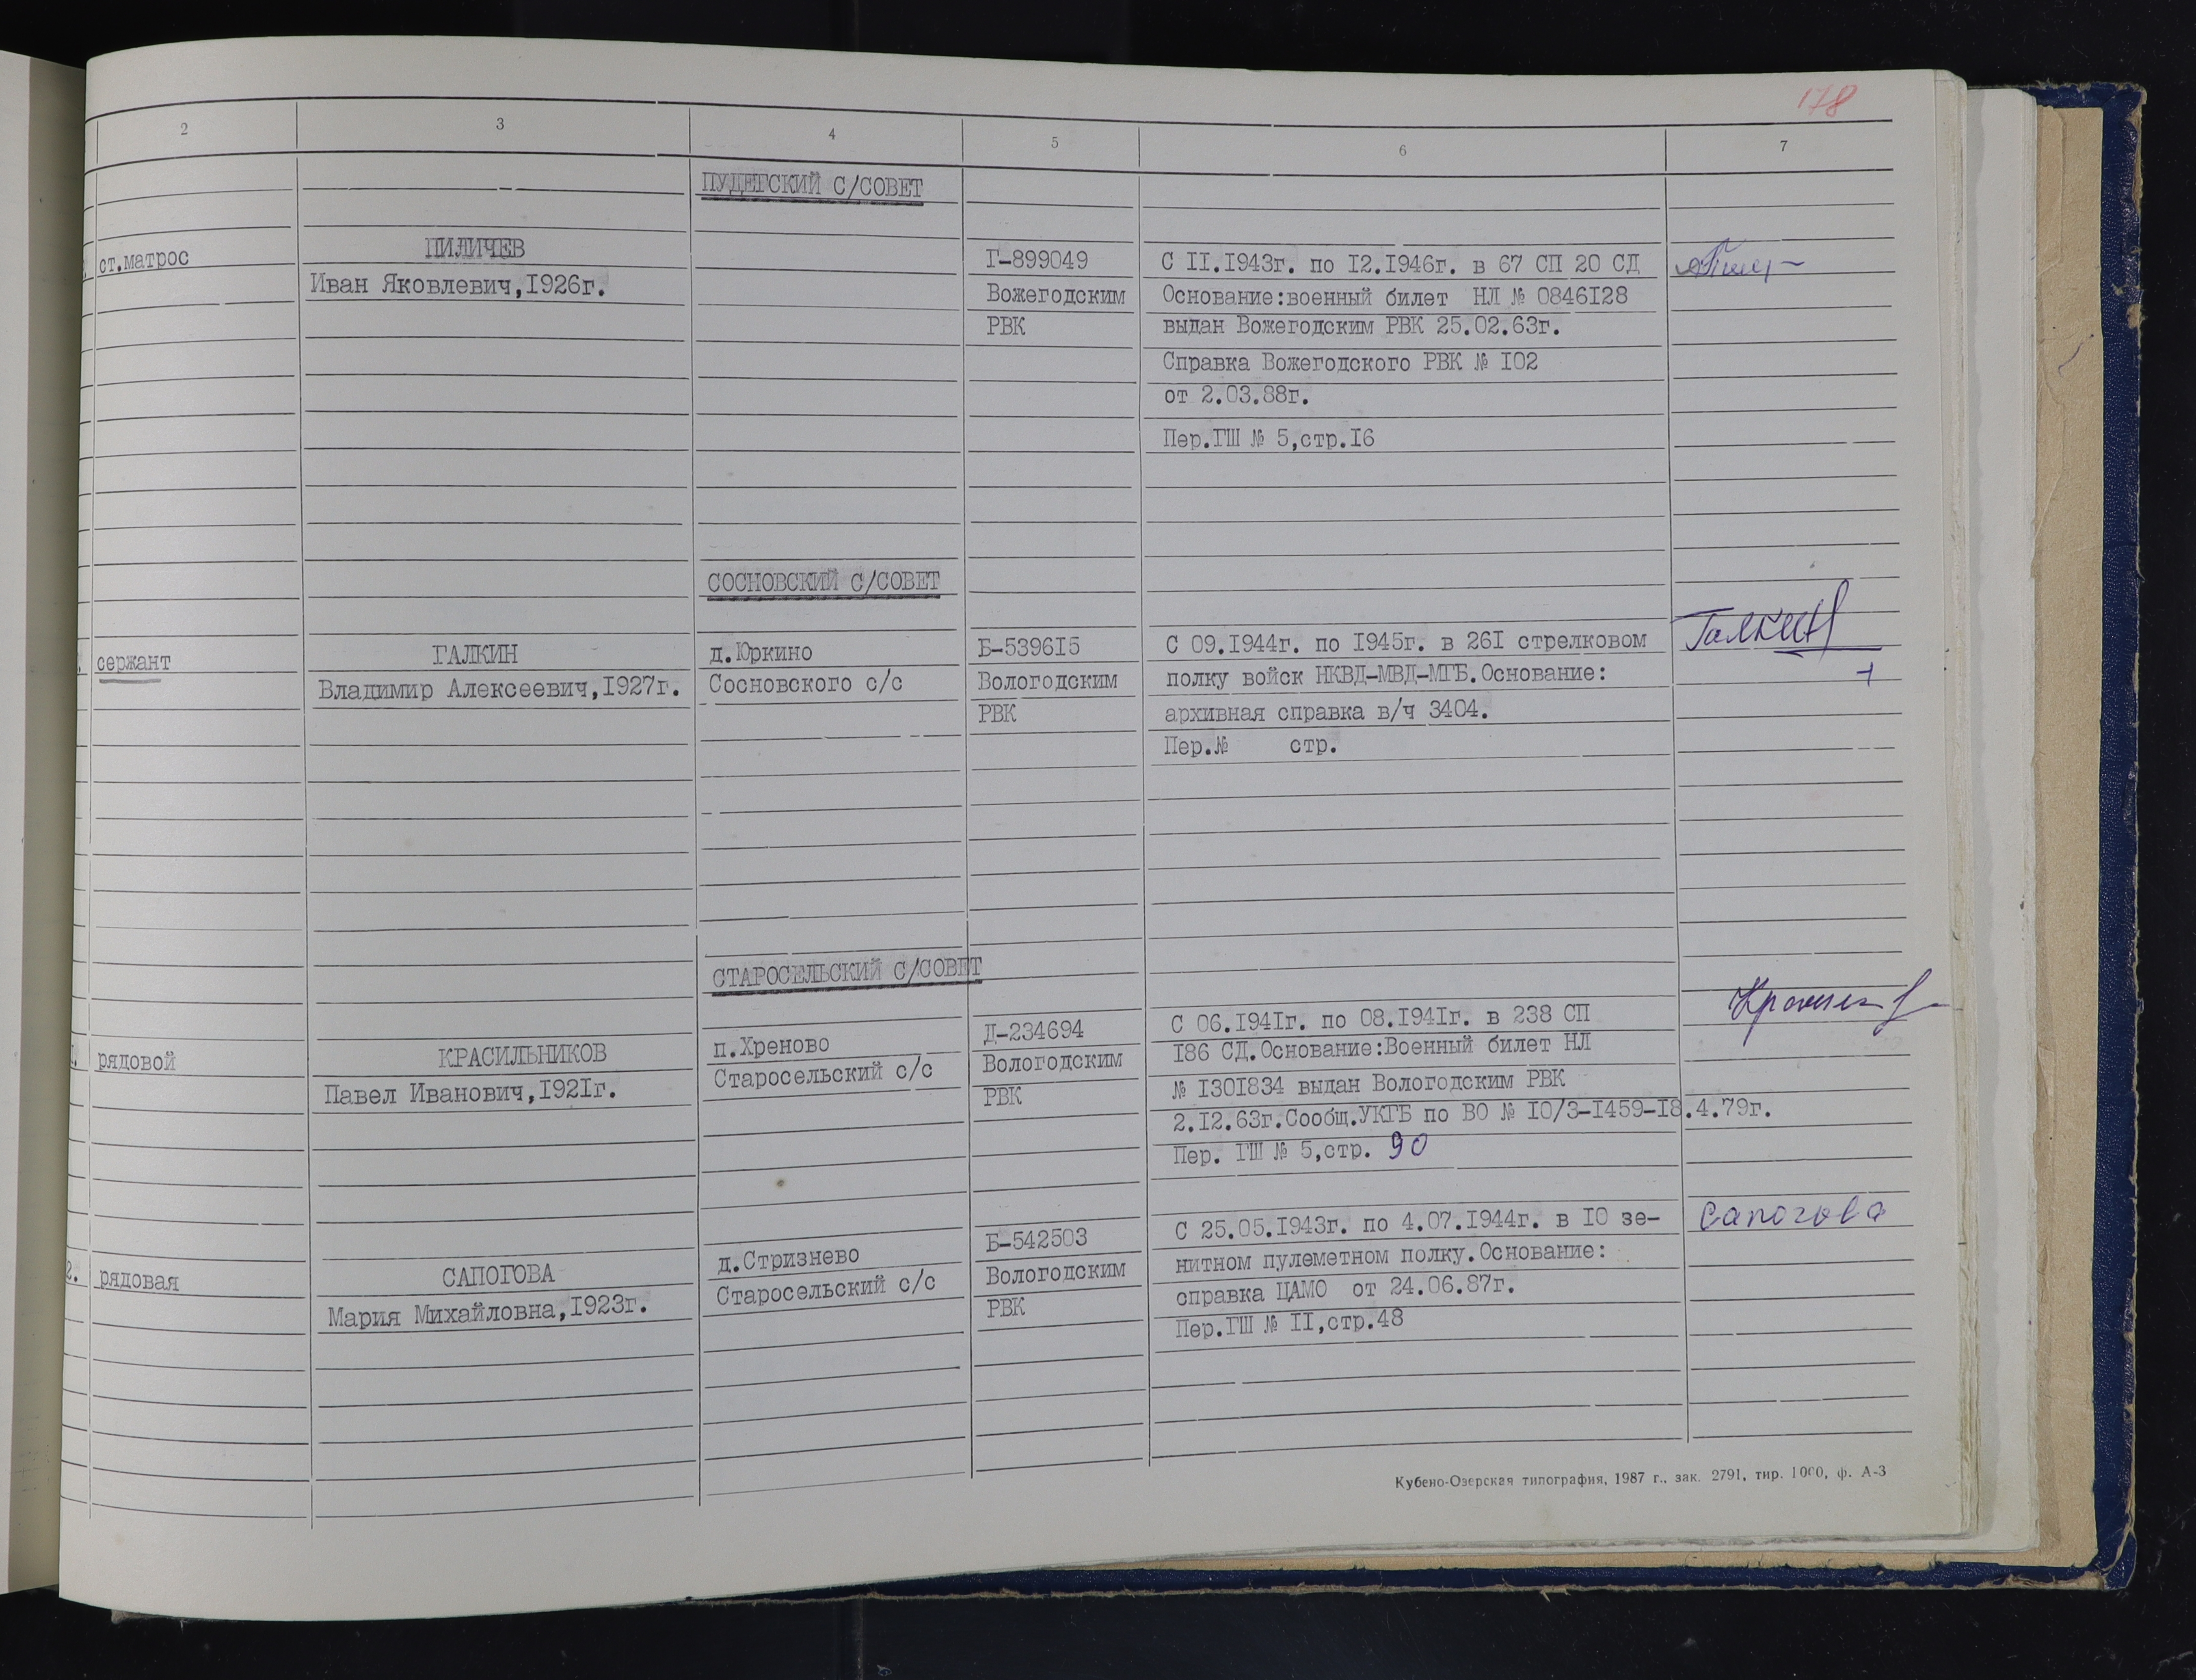 178
2 3 4 5 6 7
ПУДЕГСКИЙ С/СОВЕТ
ст.матрос
ПИЛИЧЕВ
Иван Яковлевич,I926г.
Г-899049
Вожегодским
РВК
С II.I943г. по I2.I946г. в 67 СП 20 СД
Основание:военный билет НЛ № 0846I28
выдан Вожегодским РВК 25.02.63г.
Справка Вожегодского РВК № I02
от 2.03.88г.
Пер.ГШ № 5,стр.I6
СОСНОВСКИЙ С/СОВЕТ
сержант
ГАЛКИН
Владимир Алексеевич,I927г.
д.Юркино
Сосновского с/с
Б-5396I5
Вологодским
РВК
С 09.I944г. по I945г. в 26I стрелковом
полку войск НКВД-МВД-МГБ.Основание:
архивная справка в/ч 3404.
Пер.№ стр.
Галкин
+
СТАРОСЕЛЬСКИЙ С/СОВЕТ
рядовой
КРАСИЛЬНИКОВ
Павел Иванович,I92Iг.
п.Хреново
Старосельский с/с
Д-234694
Вологодским
РВК
С 06.I94Iг. по 08.I94Iг. в 238 СП
I86 СД.Основание:Военный билет НЛ
№ I30I834 выдан Вологодским РВК
2.I2.63г.Сообщ.УКГБ по ВО № I0/3-I459-I8.4.79г.
Пер. ГШ № 5,стр. 90
2. рядовая
САПОГОВА
Мария Михайловна,I923г.
д.Стризнево
Старосельский с/с
Б-542503
Вологодским
РВК
С 25.05.I943г. по 4.07.I944г. в I0 зе-
нитном пулеметном полку.Основание:
справка ЦАМО от 24.06.87г.
Пер.ГШ № II,стр.48
Сапогова
Кубено-Озерская типография, 1987 г., зак. 2791, тир. 1000, ф. А-3